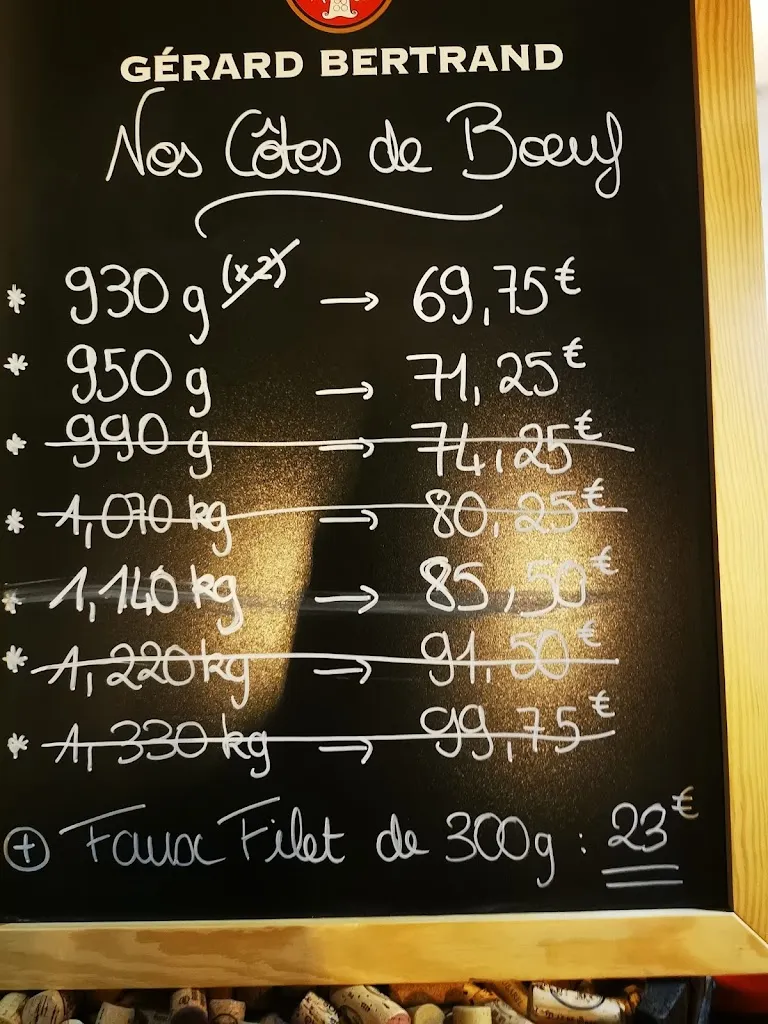 GÉRARD BERTRAND
Nos Côtes de Bœuf
* 930 g (x2) → 69,75€
* 950 g → 71,25€
* 990 g → 74,25€
* 1,070 kg → 80,25€
* 1,140 kg → 85,50€
* 1,220 kg → 91,50€
* 1,330 kg → 99,75€
⊕ Faux Filet de 300g : 23€